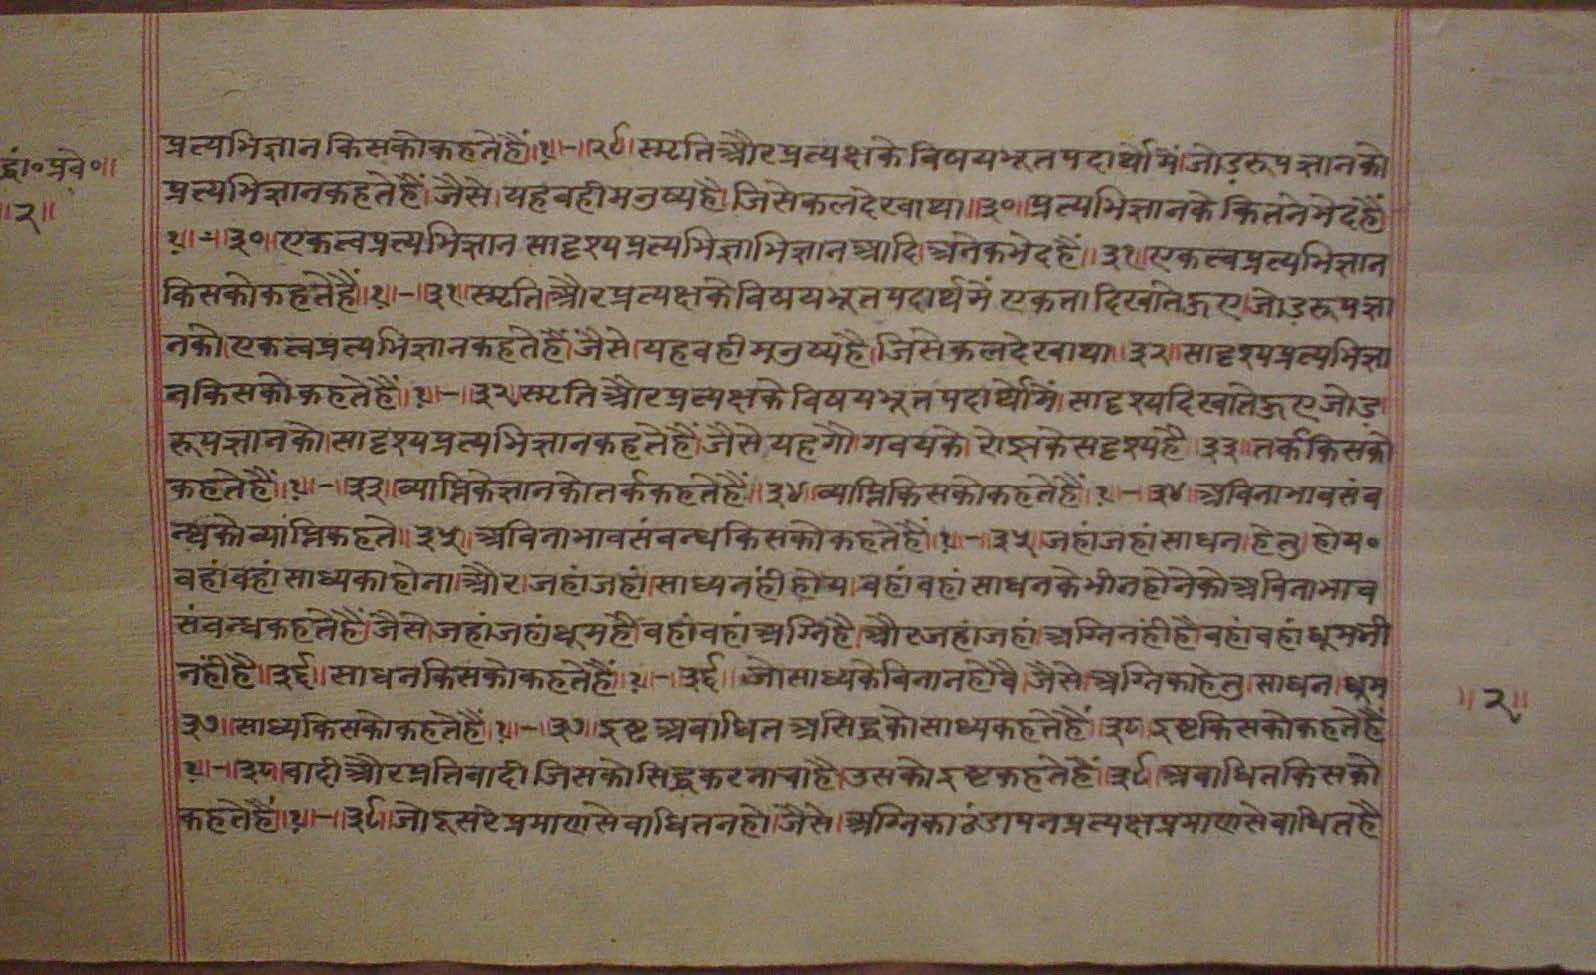 द्वां॰प्रवे॰॥
॥२॥
प्रत्यभिज्ञान किसको कहते हैं।१।-।२९।स्मृति और प्रत्यक्ष के विषयभूत पदार्थों में।जोड़रूप ज्ञान को
प्रत्यभिज्ञान कहते हैं।जैसे।यह वही मनुष्य है।जिसे कल देखा था॥३०॥प्रत्यभिज्ञान के कितने भेद हैं
।१।-।३०।एकत्व प्रत्यभिज्ञान सादृश्य प्रत्यभिज्ञाभिज्ञान आदि अनेक भेद हैं॥३१।एकत्व प्रत्यभिज्ञान
किसको कहते हैं।१।-।३१।स्मृति और प्रत्यक्ष के विषयभूत पदार्थ में एकता दिखाते हुए।जोड़रूप ज्ञा
नको।एकत्व प्रत्यभिज्ञान कहते हैं।जैसे।यह वही मनुष्य है।जिसे कल देखा था॥३२॥सादृश्य प्रत्यभिज्ञा
न किसको कहते हैं॥१।-।३२।स्मृति और प्रत्यक्ष के विषयभूत पदार्थों में।सादृश्य दिखाते हुए जोड़
रूप ज्ञान को।सादृश्य प्रत्यभिज्ञान कहते हैं।जैसे यह गौ गवय के।रोझ के सदृश्य है।३३॥तर्क किसको
कहते हैं।१।-।३३।व्याप्ति के ज्ञान को तर्क कहते हैं॥३४॥व्याप्ति किसको कहते हैं।१।-।३४।अविनाभाव संब
न्ध को व्याप्ति कहते॥३५॥अविनाभाव संबन्ध किसको कहते हैं।१।-।३५।जहां जहां साधन।हेतु।होय॰
वहां वहां साध्य का होना।और।जहां जहां।साध्य नंही होय।वहां वहां साधन के भी न होने को अविनाभाव
संबन्ध कहते हैं।जैसे।जहां जहां धूम है वहां वहां अग्नि है।और जहां जहां अग्नि नंही है वहां वहां धूम भी
नंही है॥३६॥साधन किसको कहते हैं।१।-।३६॥जो साध्य के विना न होवै।जैसे अग्नि का हेतु।साधन।धूम
३७॥साध्य किसको कहते हैं।१।-।३७।इष्ट अबाधित असिद्ध को साध्य कहते हैं॥३८।इष्ट किसको कहते हैं
।१।-।३८।वादी और प्रतिवादी जिसको सिद्ध करना चाहै।उसको इष्ट कहते हैं॥३९॥अबाधित किसको
कहते हैं।१।-।३९।जो दूसरे प्रमाण से बाधित न हो।जैसे।अग्नि का ठंडापन प्रत्यक्ष प्रमाण से बाधित है
॥२॥